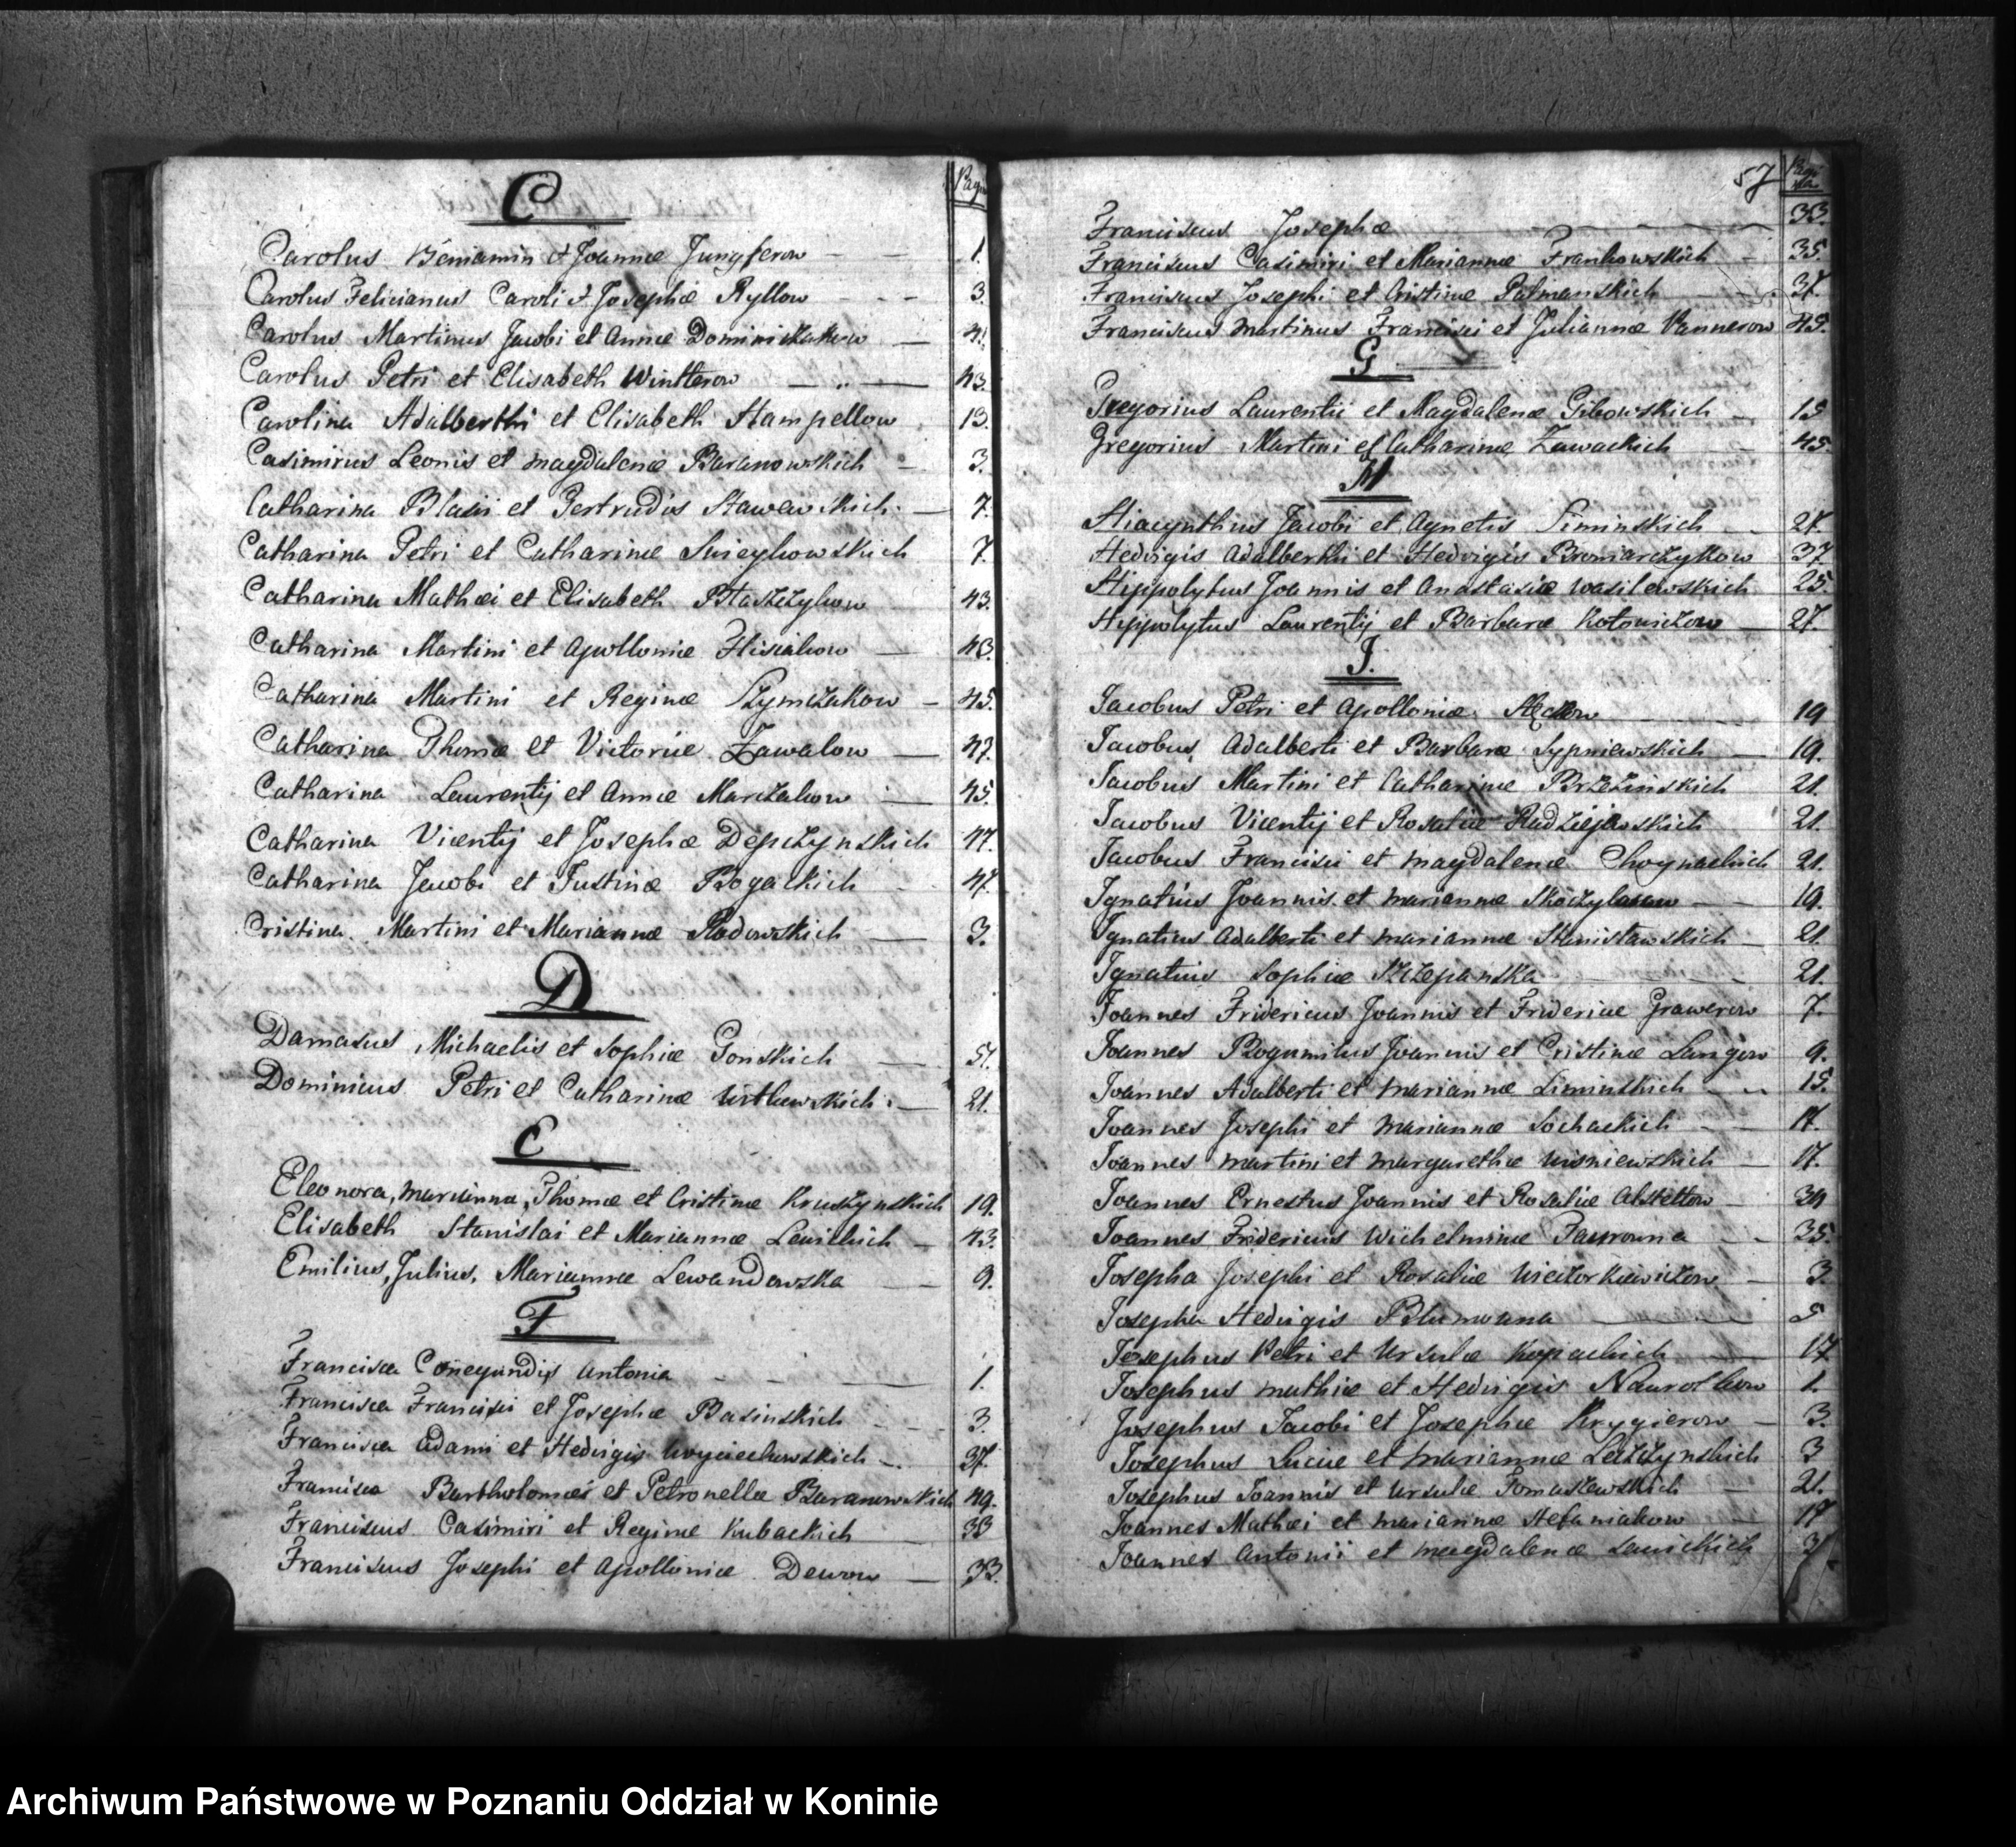 C
Pag
Carolus Beniamin & Joannæ Jungferow 1.
Carolus Felicianus Caroli & Josephæ Ryllow 3.
Carolus Martinus Jacobi et Annæ 41.
Carolus Petri et Elisabeth Wintterow 43.
Carolina Adalberthi et Elisabeth Hampellow 13.
Casimirus Leonis et Magdalenæ Baranowskich 3.
Catharina Blasii et Gertrudis Stawewskich 7.
Catharina Petri et Catharinæ 7.
Catharina Mathæi et Elisabeth 43.
Catharina Martini et Apolloniæ 43.
Catharina Martini et Reginæ Szymczakow 45.
Catharina Thomæ et Victoriæ Zawalow 47.
Catharina Laurentij et Annæ Marczakow 45.
Catharina Vicentij et Josephæ Depczynskich 47.
Catharina Jacobi et Justinæ Rogalkich 47.
Cristina Martini et Mariannæ Radowskich 3.
D
Damasus Michaelis et Sophiæ Gonskich 51.
Dominicus Petri et Catharinæ 21.
E
Eleonora, Marianna, Thomæ et Cristinæ Kruszynskich 19.
Elisabeth Stanislai et Mariannæ Lewickich 43.
Emilius, Julius, Mariannæ Lewandowska 9.
F
Francisca Conegundis Antonia 1.
Francisca Francisci et Josephæ Basinskich 3.
Francisca Adami et Hedvigis Woyciechowskich 37.
Francisca Bartholomæi et Petronellæ Baranowskich 49.
Franciscus Casimiri et Reginæ Kubackich 33
Franciscus Josephi et Apolloniæ Dewow 33.
57
Pagi
na
Franciscus Josephæ 33.
Franciscus Casimiri et Mariannæ Frankowskich 35.
Franciscus Josephi et Cristinæ Palmanskich 37.
Franciscus Martinus Francisci et Juliannæ Vannerow 45.
G
Gregorius Laurentii et Magdalenæ Gibowskich 15
Gregorius Martini et Catharinæ Zawackich 45.
H
Hiacynthius Jacobi et Agnetis Siminskich 27.
Hedvigis Adalberthi et Hedvigis Broniarczykow 37.
Hippolytus Joannis et Anastasiæ Wasilewskich 25.
Hippolytus Laurentij et Barbaræ Kotowiczow 27.
J.
Jacobus Petri et Apolloniæ 19
Jacobus Adalberti et Barbaræ Sypniewskich 19.
Jacobus Martini et Catharinæ Brzezinskich 21.
Jacobus Vicentij et Rosaliæ Radziejewskich 21.
Jacobus Francisci et Magdalenæ Choynackich 21.
Ignatius Joannis et Mariannæ 19.
Ignatius Adalberti et Mariannæ Stanisławskich 21.
Ignatius Sophiæ Szczepanska 21.
Joannes Fridericus Joannis et Fridericæ Grawerow 7.
Joannes Bogumilus Joannis et Cristinæ Langow 9.
Joannes Adalberti et Mariannæ Siminskich 15.
Joannes Josephi et Mariannæ Sochackich 17.
Joannes Martini et Margarethæ Wisniewskich 17.
Joannes Ernestus Joannis et Rosaliæ Abstellow 39
Joannes Fridericus Wichelminæ 35.
Josepha Josephi et Rosaliæ Wieczorkiewiczow 3.
Josepha Hedvigis Blumowna 5
Josephus Petri et Ursulæ Kopackich 17
Josephus Mathiæ et Hedvigis Nawrotkow 1.
Josephus Jacobi et Josephæ Krygierow 3.
Josephus Lucæ et Mariannæ Leszczynskich 3
Josephus Joannis et Ursulæ Tomaszewskich 21.
Joannes Mathæi et Mariannæ Stefaniakow 17
Joannes Antonii et Magdalenæ Sawickich 3
Archiwum Państwowe w Poznaniu Oddział w Koninie